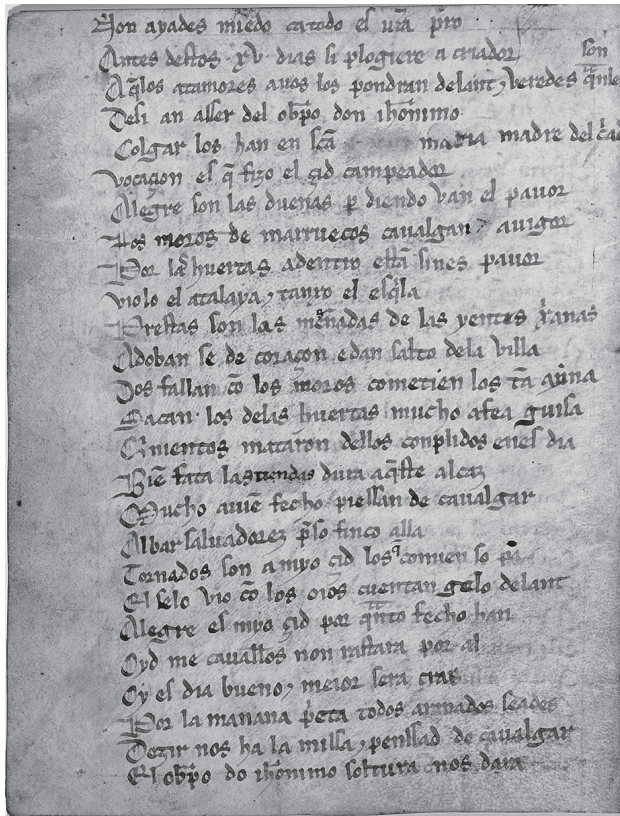 Non ayades miedo ca todo es vr̃a p̃ro
Antes destos .xv. dias si plogiere a criador son
Aq̃los atamores auos los pondran delant ⁊ veredes q̃nles
Desi an asser del obp̃o don ih̃onimo
Colgar los han en sc̃a maria madre del c̃ad
vocaçon es q̃ fizo el çid campeador
Alegre son las dueñas ꝑdiendo van el pauor
Los moros de marruecos caualgan auigor
Por las huertas adentro estã sines pauor
violo el atalaya ⁊ tanxo el esq̃la
Prestas son las mesnadas de las yentes xr̃anas
Adoban se de coraçon e dan salto dela villa
Dos fallan cõ los moros cometien los tã ayna
Sacan los delas huertas mucho afea guisa
Quinientos mataron dellos conplidos enes dia
Biẽ fata las tiendas dura aq̃ste alcaz
Mucho auiẽ fecho piessan de caualgar
Albar saluadorez p̃so finco alla
Tornados son a myo çid los q̃ comien so pã
El selo vio cõ los oios cuentan gelo delant
Alegre es myo çid por q̃nto fecho han
Oyd me cauallos non rastara por al
Oy es dia bueno ⁊ meior sera cras
Por la mañana p̃eta todos armados seades
Dezir nos ha la missa ⁊ penssad de caualgar
El obp̃o do ih̃onimo soltura nos dara